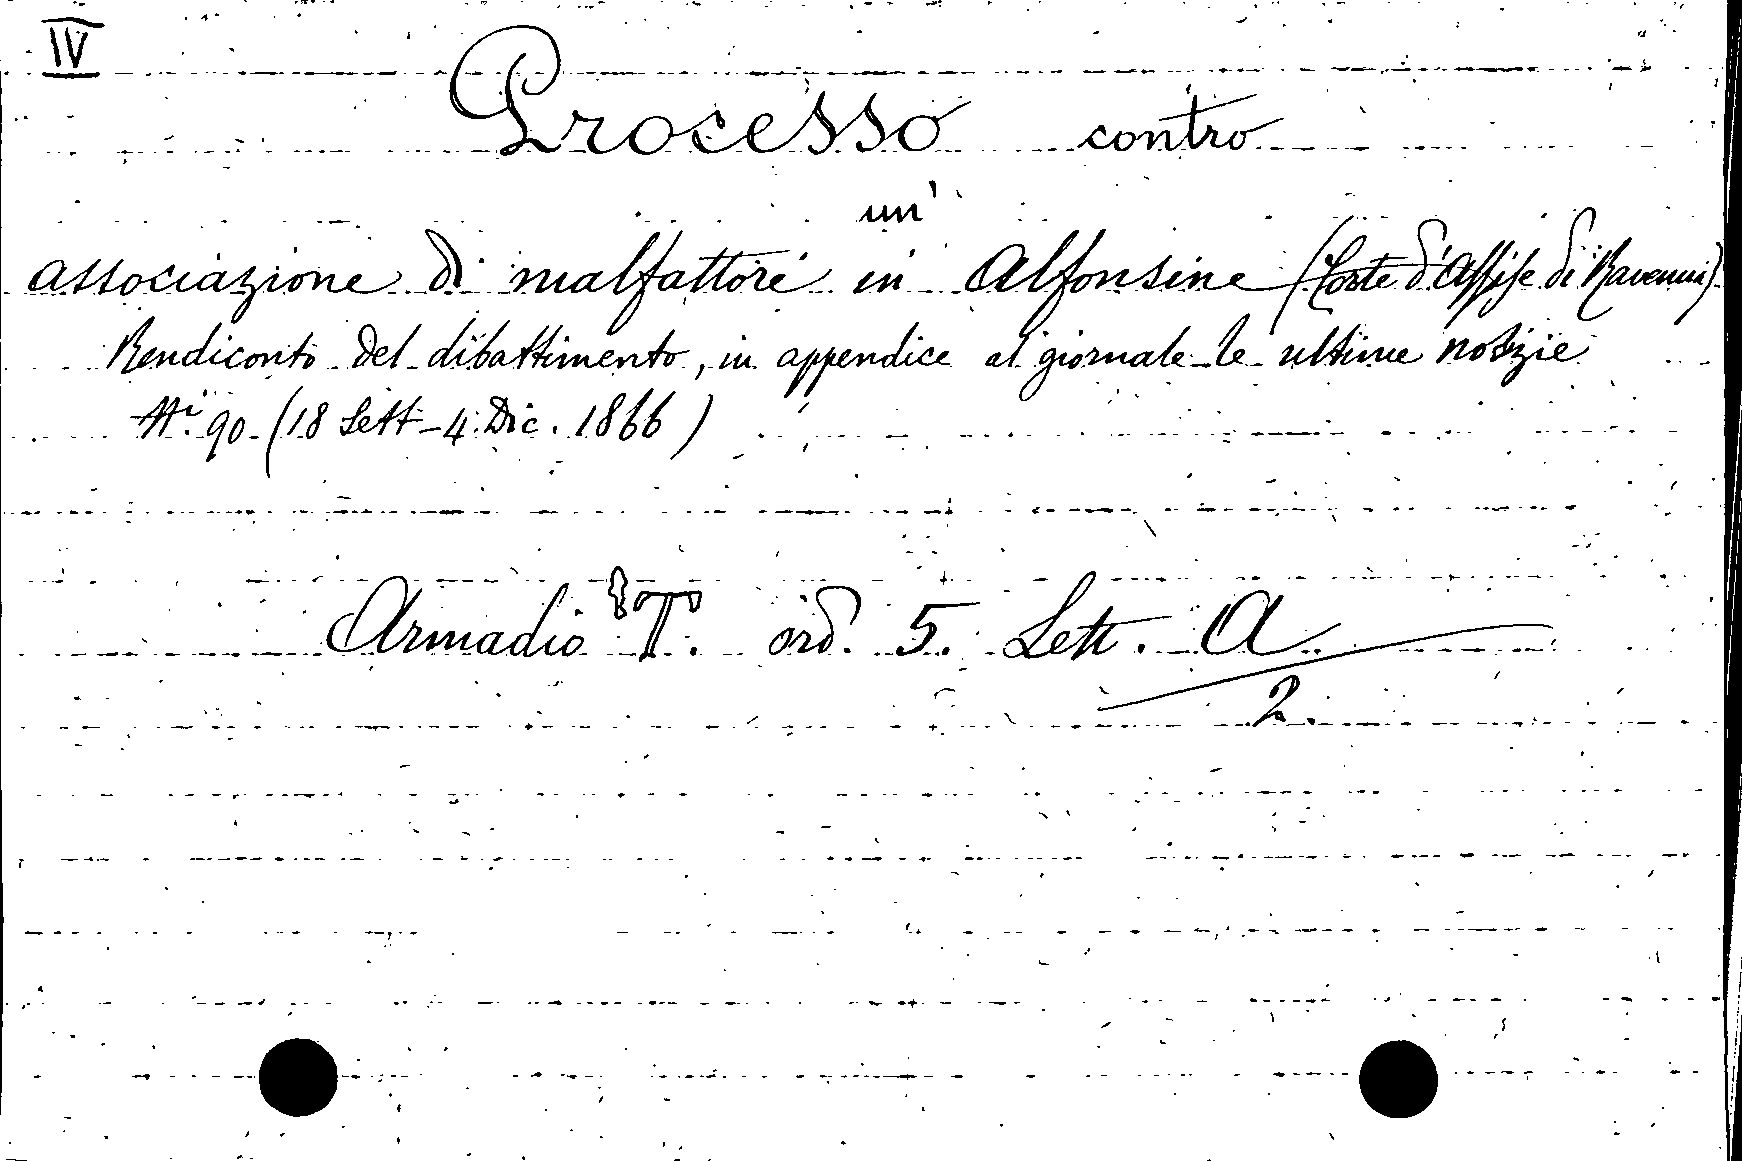 IV
Processo contro
un'
associazione di malfattori in Alfonsine (Corte d'Assise di Ravenna)
Rendiconto del dibattimento, in appendice al giornale le ultime notizie
Ni. 90 (18 Sett - 4 Dic. 1866)
Armadio T. ord. 5. Lett. A
2.